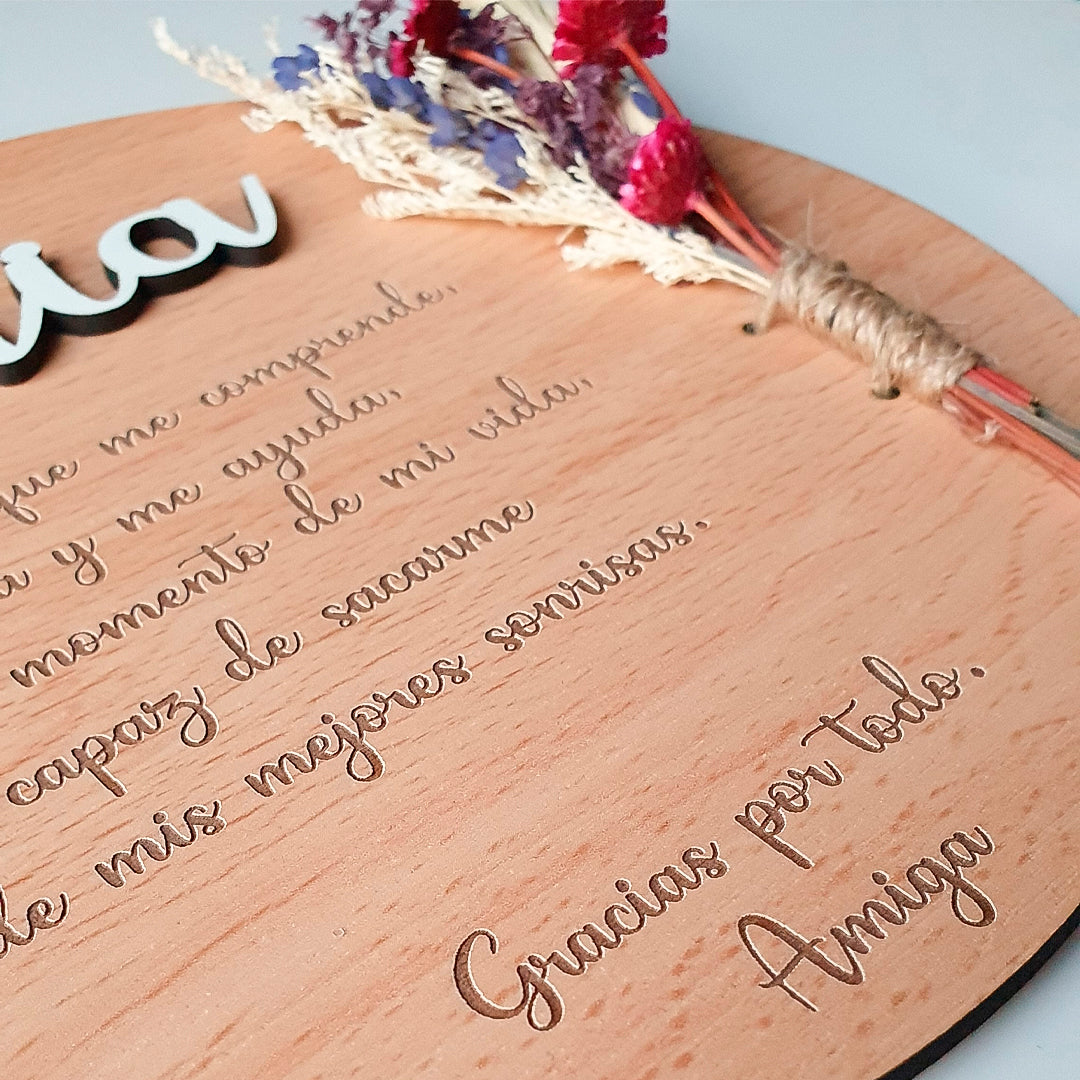 via
que me comprende,
y me ayuda,
momento de mi vida,
capaz de sacarme
de mis mejores sonrisas.
Gracias por todo.
Amiga